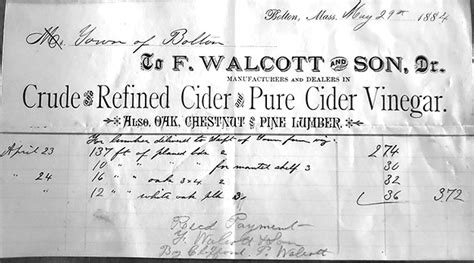 Bolton, Mass. May 29th 1884
Mr. Town of Bolton
To F. WALCOTT AND SON, Dr.
MANUFACTURERS AND DEALERS IN
Crude and Refined Cider and Pure Cider Vinegar.
ALSO, OAK, CHESTNUT AND PINE LUMBER.
For lumber delived to Supt of Town farm
April 23 137 ft of planed 2 274
10 " " " for mantel shelf 3 30
" 24 16 " oak 3x4 2 32
" 12 " white oak plk 3c 36 3.72
Recd Payment
F. Walcott & Son
By Clifford P. Walcott